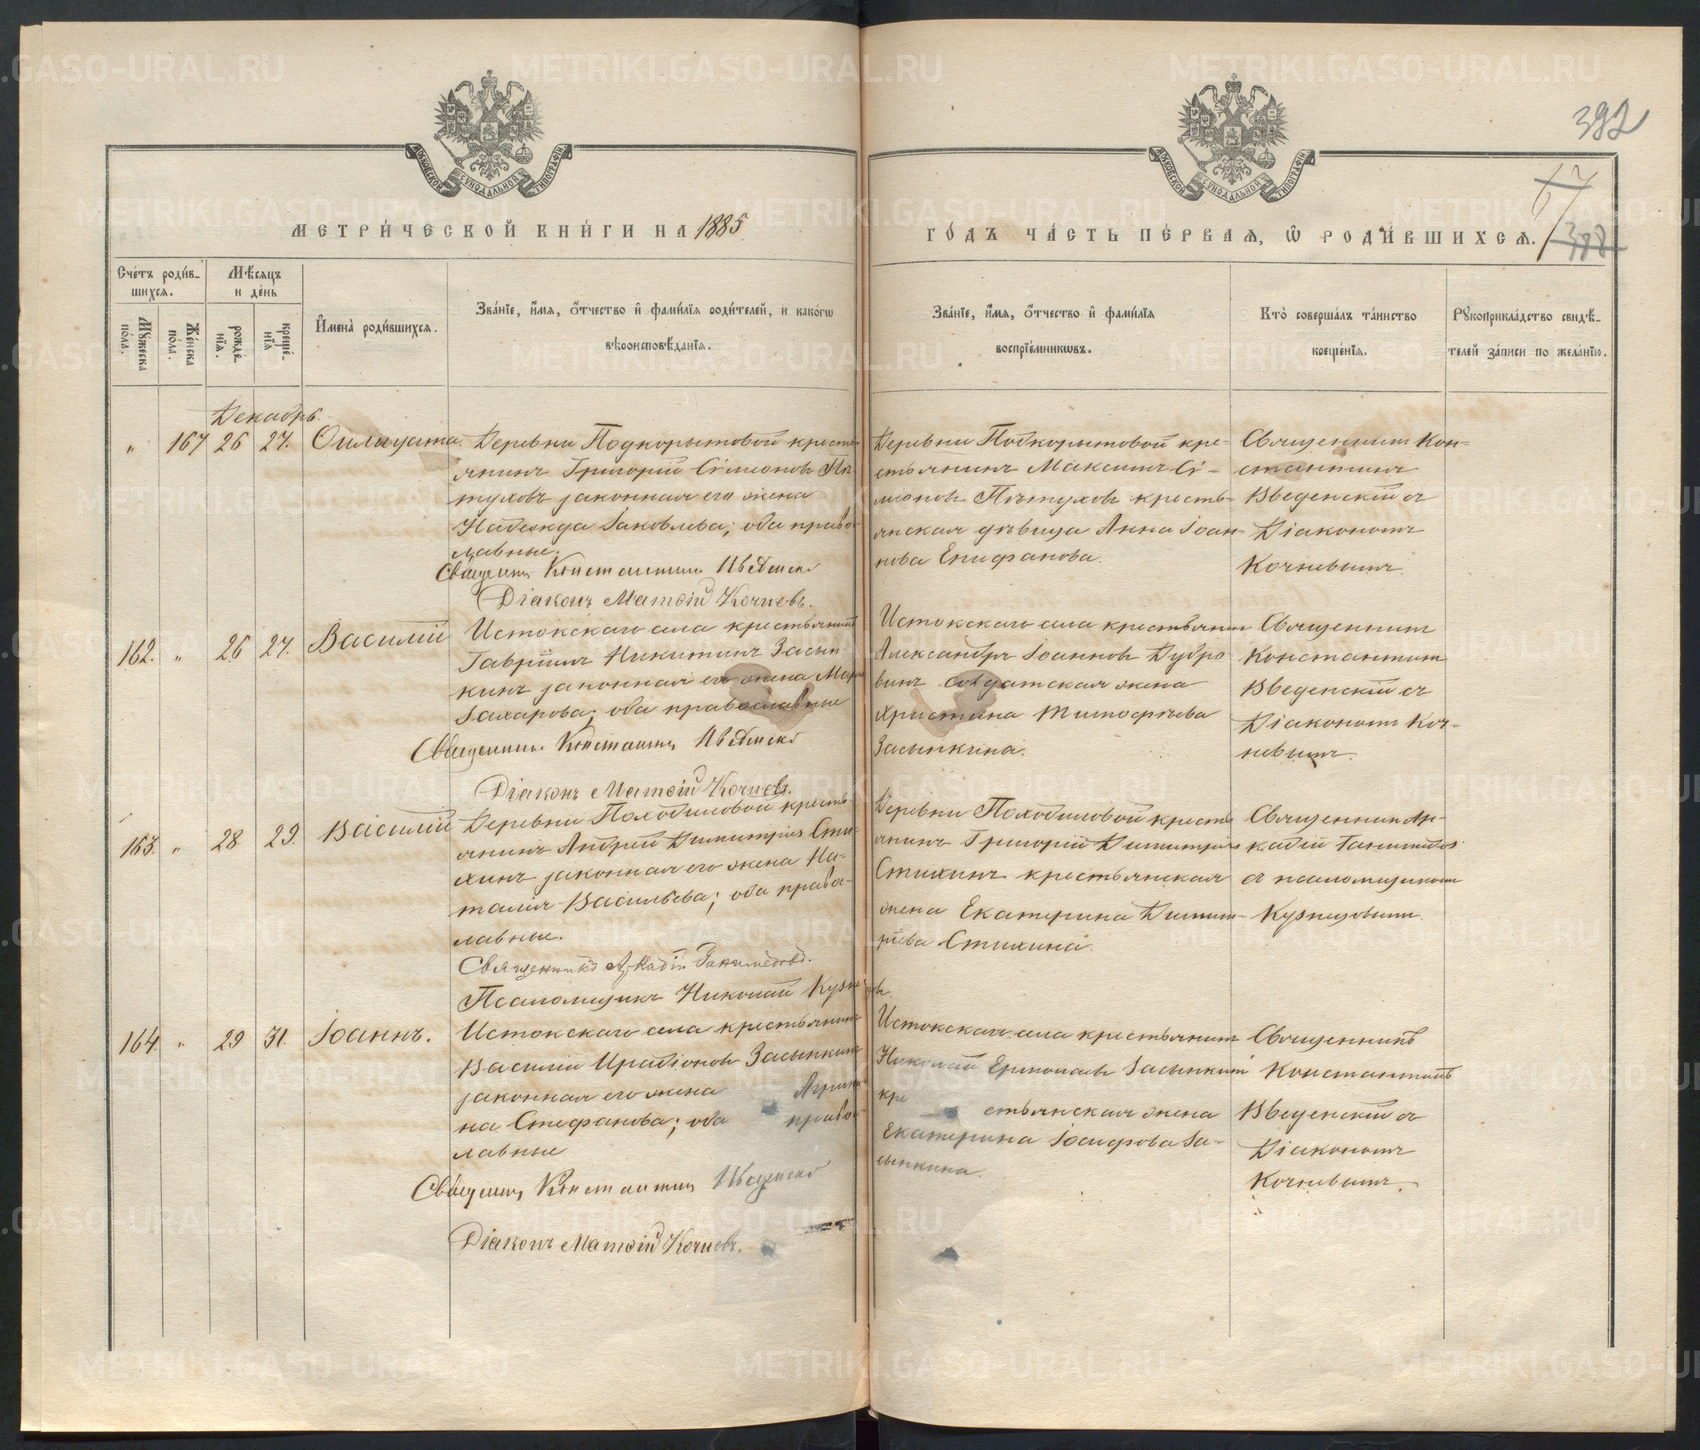 МЕТРИ́ЧЕСКОЙ КНИ́ГИ НА 1885
ГО́ДЪ ЧА́СТЬ ПЕ́РВАЯ, Ѽ РОДИ́ВШИХСЯ.
392
Сче́тъ роди́в-
шихся.
Мѣ́сяцъ
и де́нь
Мꙋжеска
по́ла.
Же́нска
пола.
рожде́-
нїѧ.
креще́-
нїѧ
И҆мена̀ роди́вшихсѧ.
Зва́нїе, и҆́мѧ, ѻ҆́тчество и҆ фами́лїѧ роди́телей, и како́гѡ
вѣроисповѣ́данїѧ.
Зва́нїе, и҆́мѧ, ѻ҆́тчество и҆ фами́лїѧ
воспрїе́мникѡвъ.
Кто̀ соверша́лъ та́инство
креще́нїѧ.
Рꙋкоприкла́дство свидѣ́-
телей за́писи по жела́нїю.
Декабрь.
„ 167 26 27.
Деревни Подкорытовой кресть-
янинъ Григорій Сѷмеоновъ Пѣ-
туховъ законная его жена
Надежда Іаковлева; оба право-
славные.
Священ. Константинъ Введенскій
Діаконъ Матѳій Кочневъ.
Деревни Подкорытовой кре-
стьянинъ Максимъ Сѷ-
меоновъ Пѣтуховъ кресть-
янская дѣвица Анна Іоан-
нова Епифанова.
Священникъ Кон-
стантинъ
Введенскій съ
Діакономъ
Кочневымъ.
162. „ 26 27. Василій
Истокскаго села крестьянинъ
Гавріилъ Никитинъ Засып-
кинъ законная его жена
Захарова; оба православные
Священникъ Константинъ Введенскій
Діаконъ Матѳій Кочневъ.
Истокскаго села крестьянинъ
Александръ Іоанновъ Дубро-
винъ солдатская жена
Христина Тимофѣева
Засыпкина.
Священникъ
Константинъ
Введенскій съ
Діакономъ Коч-
невымъ.
163. „ 28 29. Василій
Деревни Походиловой кресть-
янинъ Андрей Димитріевъ Сти-
хинъ законная его жена На-
талія Васильева; оба право-
славные.
Священникъ Аркадій Ганимедовъ.
Псаломщикъ Николай Кузнецовъ.
Деревни Походиловой кресть-
янинъ Григорій Димитріевъ
Стихинъ крестьянская
жена Екатерина Димит-
ріева Стихина.
Священникъ Ар-
кадій Ганимедовъ
съ псаломщикомъ
Кузнецовымъ.
164. „ 29 31. Іоаннъ.
Истокскаго села крестьянинъ
Василій Иродіоновъ Засыпкинъ
законная его жена Агрипи-
на Стефанова; оба право-
славные
Священ. Константинъ Введенскій
Діаконъ Матѳій Кочневъ.
Истокскаго села крестьянинъ
Николай Ермолаевъ Засыпкинъ
кре стьянская жена
Екатерина Іосифова За-
сыпкина.
Священникъ
Константинъ
Введенскій съ
Діакономъ
Кочневымъ.